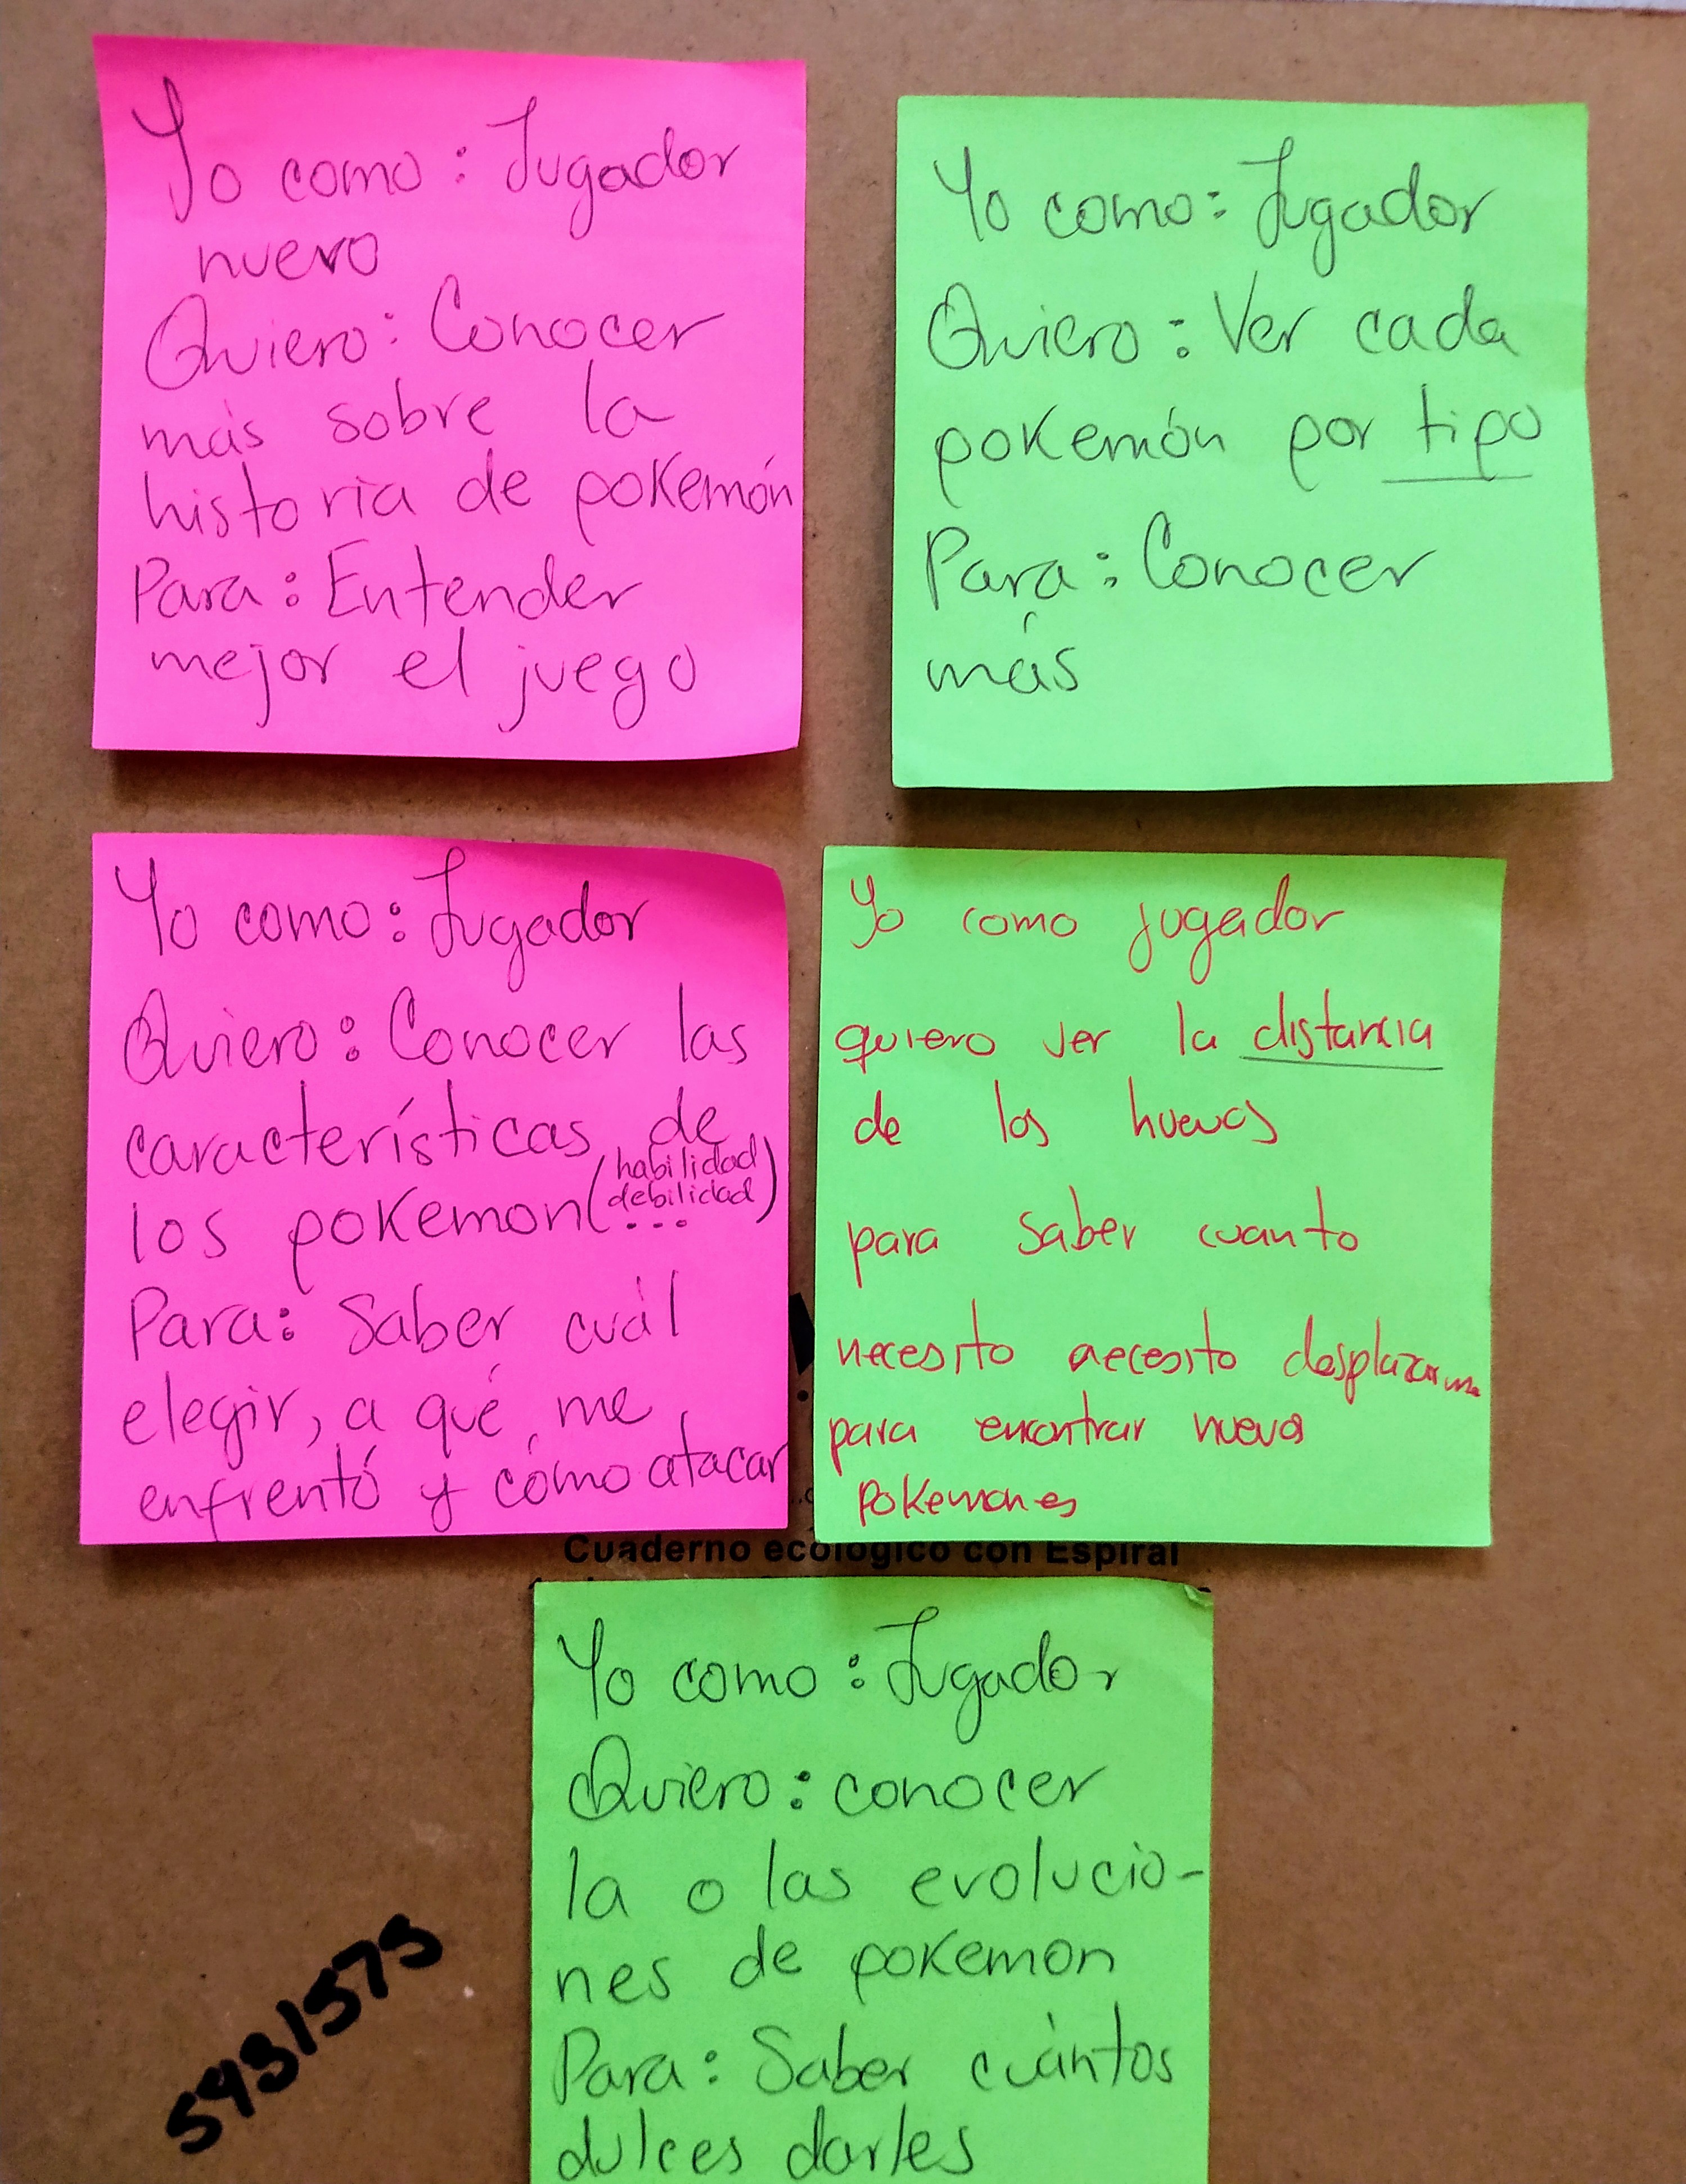 Yo como: Jugador
nuevo
Quiero: Conocer
más sobre la
historia de pokemón
Para: Entender
mejor el juego
Yo como: Jugador
Quiero: Ver cada
pokemón por tipo
Para: Conocer
más
Yo como: Jugador
Quiero: Conocer las
características de
los pokemon (habilidad
debilidad)
...
Para: Saber cuál
elegir, a qué me
enfrentó y cómo atacar
Yo como jugador
quiero ver la distancia
de los huevos
para saber cuanto
necesito necesito desplazarme
para encontrar nuevos
pokemones
Cuaderno ecológico con Espiral
Yo como: Jugador
Quiero: conocer
la o las evolucio-
nes de pokemon
Para: Saber cuántos
dulces darles